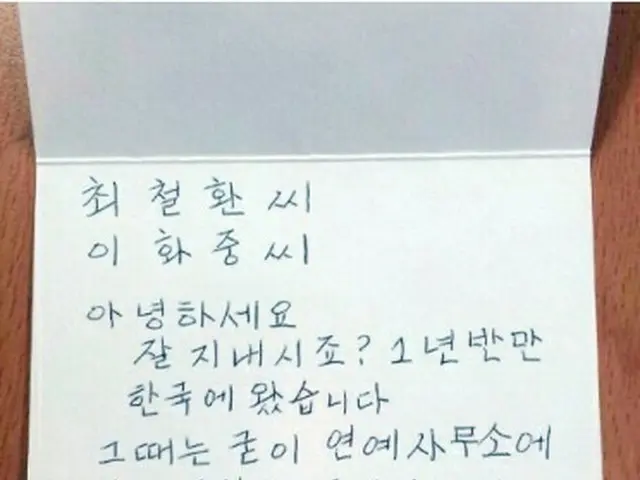 최 철 환 씨
이 화 중 씨
아녕하세요
잘 지내시죠? 1년반만
한국에 왔습니다
그때는 굳이 연예사무소에